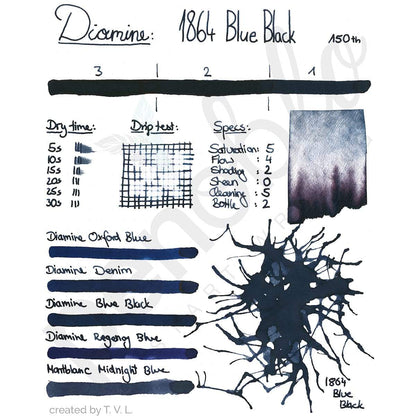 Diamine: 1864 Blue Black 150th
3 2 1
Dry time: Drip test: Specs:
5s
10s
15s
20s
25s
30s
Saturation: 5
Flow : 4
Shading : 2
Sheen : 0
Cleaning : 5
Bottle : 2
Diamine Oxford Blue
Diamine Denim
Diamine Blue Black
Diamine Regency Blue
Montblanc Midnight Blue
1864
Blue
Black
created by T. V. L.